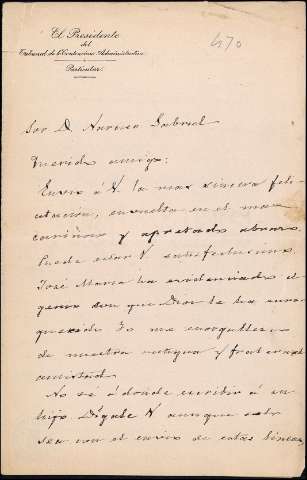 El Presidente
del
Tribunal de lo Contencioso Administrativo
Particular
470
Sor D. Gabriel
Querido amigo:
Envio á V. la mas sincera feli-
tacion, envuelta en el mas
cariñoso y apretado abrazo.
Puede estar V satisfechisimo.
José Maria ha evidenciado el
genio con que Dios le ha enri-
quecido Yo me enorgullezco
de nuestra antigua y fraternal
amistad.
No se á donde escribir á su
hijo Dígale V aunque
sea con el envio de estas lineas,